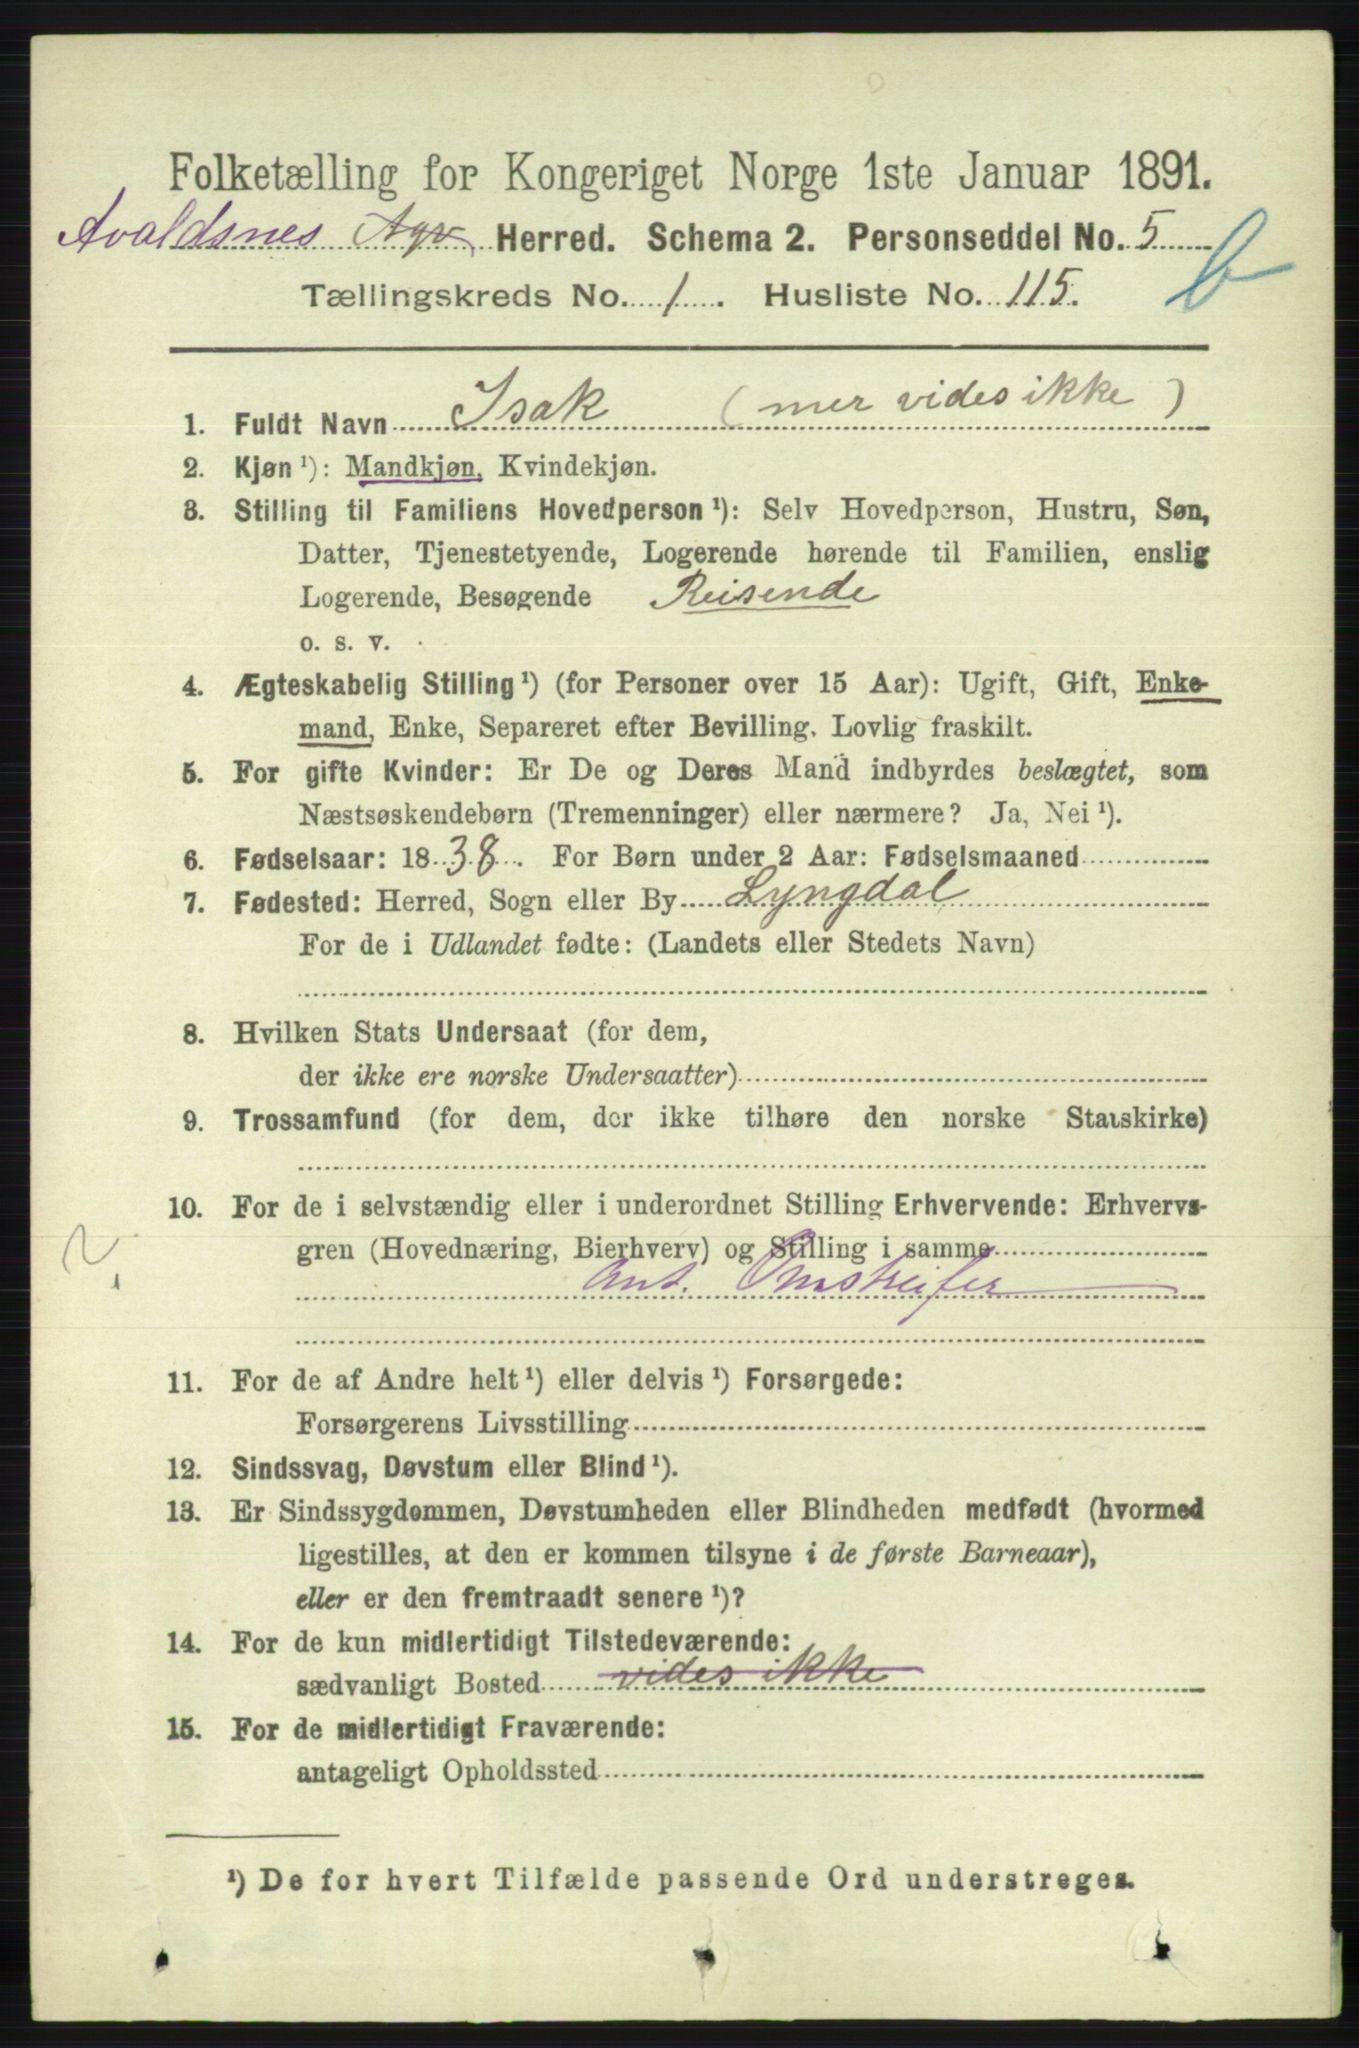 Folketælling for Kongeriget Norge 1ste Januar 1891.
Avaldsnes Agv Herred. Schema 2. Personseddel No. 5 b
Tællingskreds No. 1. Husliste No. 115.
1. Fuldt Navn Isak (mer vides ikke)
2. Kjøn ¹): Mandkjøn, Kvindekjøn.
3. Stilling til Familiens Hovedperson ¹): Selv Hovedperson, Hustru, Søn,
Datter, Tjenestetyende, Logerende hørende til Familien, enslig
Logerende, Besøgende Reisende
o. s. v.
4. Ægteskabelig Stilling ¹) (for Personer over 15 Aar): Ugift, Gift, Enke-
mand, Enke, Separeret efter Bevilling. Lovlig fraskilt.
5. For gifte Kvinder: Er De og Deres Mand indbyrdes beslægtet, som
Næstsøskendebørn (Tremenninger) eller nærmere? Ja, Nei ¹).
6. Fødselsaar: 1838. For Børn under 2 Aar: Fødselsmaaned
7. Fødested: Herred, Sogn eller By Lyngdal
For de i Udlandet fødte: (Landets eller Stedets Navn)
8. Hvilken Stats Undersaat (for dem,
der ikke ere norske Undersaatter)
9. Trossamfund (for dem, der ikke tilhøre den norske Statskirke)
10. For de i selvstændig eller i underordnet Stilling Erhvervende: Erhvervs-
gren (Hovednæring, Bierhverv) og Stilling i samme
Ant. Omstreifer
11. For de af Andre helt ¹) eller delvis ¹) Forsørgede:
Forsørgerens Livsstilling
12. Sindssvag, Døvstum eller Blind ¹).
13. Er Sindssygdommen, Døvstumheden eller Blindheden medfødt (hvormed
ligestilles, at den er kommen tilsyne i de første Barneaar),
eller er den fremtraadt senere ¹)?
14. For de kun midlertidigt Tilstedeværende:
sædvanligt Bosted vides ikke
15. For de midlertidigt Fraværende:
antageligt Opholdssted
¹) De for hvert Tilfælde passende Ord understreges.